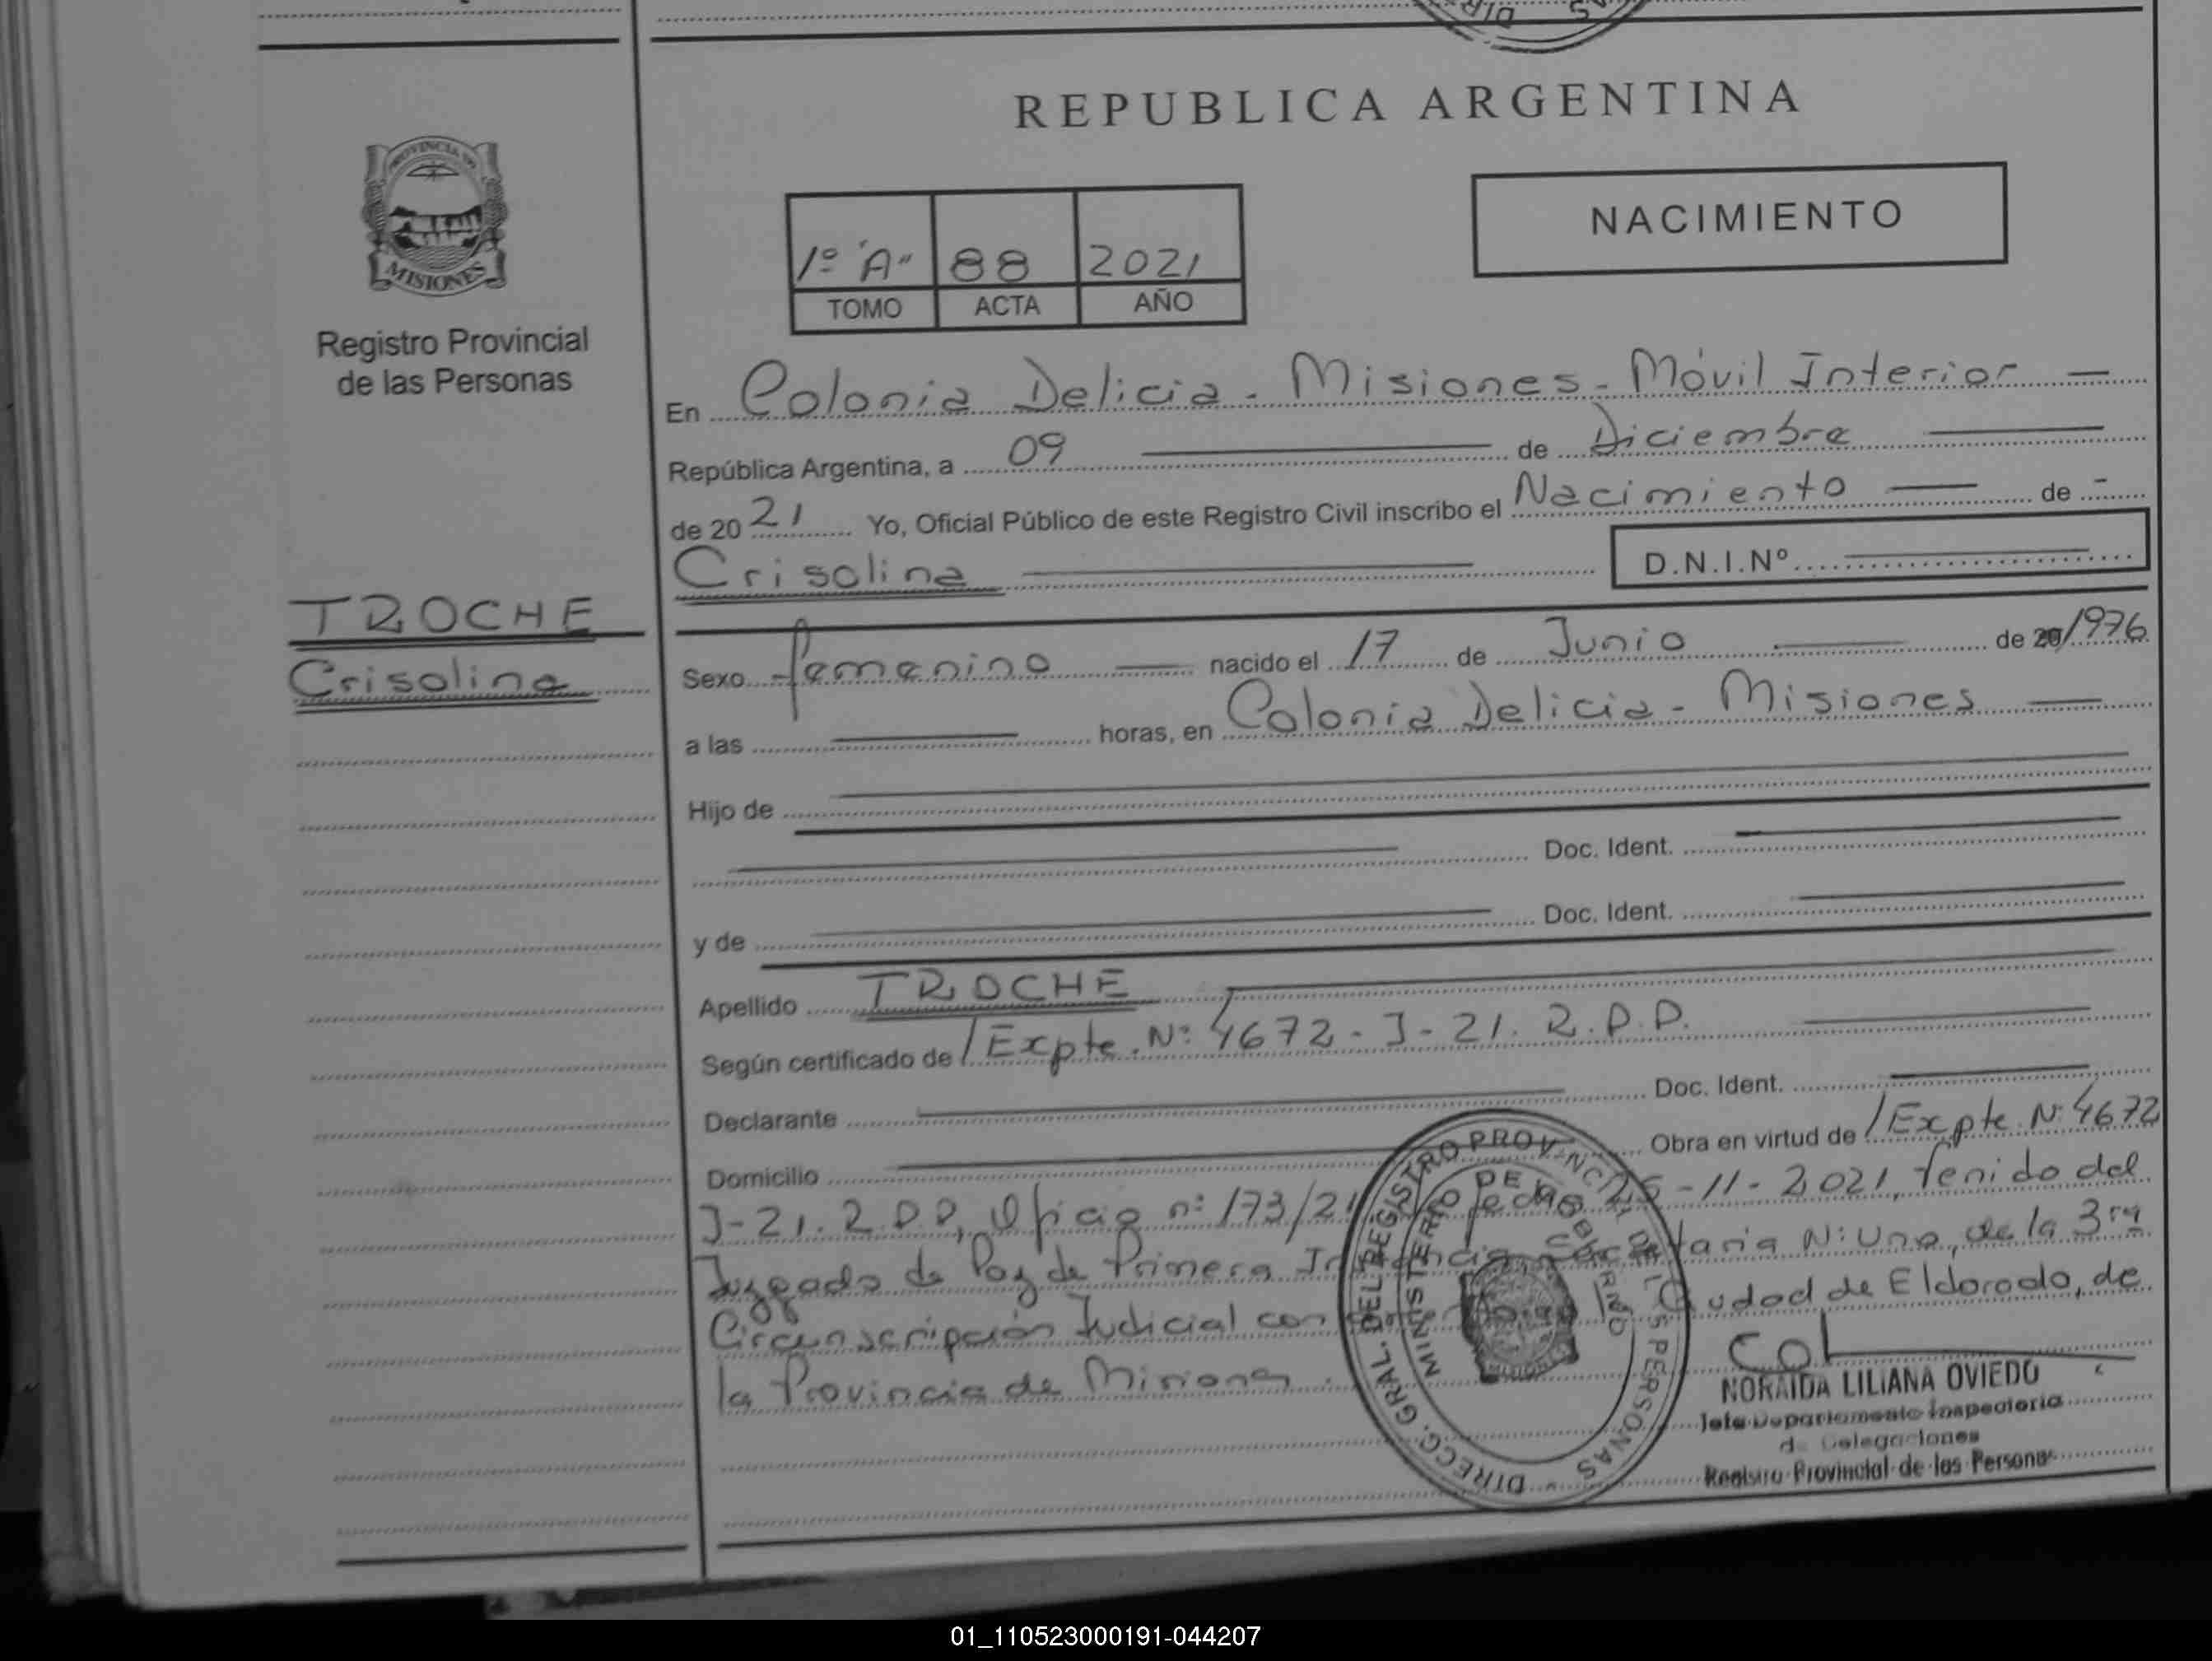 REPUBLICA ARGENTINA
PROVINCIA DE
MISIONES
Registro Provincial
de las Personas
NACIMIENTO
1º "A" 88 2021
TOMO ACTA AÑO
En Colonia Delicia - Misiones - Móvil Interior
República Argentina, a 09 de Diciembre
de 2021 Yo, Oficial Público de este Registro Civil inscribo el Nacimiento de -
Crisolina D.N.I.Nº
TROCHE
Crisolina
Sexo femenino nacido el 17 de Junio de 20/1976
a las horas, en Colonia Delicia - Misiones
Hijo de
Doc. Ident.
y de Doc. Ident.
Apellido TROCHE
Según certificado de /Expte. Nº 4672 - J - 21. R.P.P.
Declarante Doc. Ident.
Domicilio Obra en virtud de /Expte. Nº 4672
J-21. R.P.P, Oficio nº 173/21 fecha 25-11-2021, tenido del
Juzgado de Paz de Primera Instancia, secretaria Nº Uno, de la 3ra
Circunscripción Judicial con Ciudad de Eldorado, de
la Provincia de Misiones.
DIRECC. GRAL. DEL REGISTRO PROVINCIAL DE LAS PERSONAS
MINISTERIO DE GOBIERNO
MISIONES
NORAIDA LILIANA OVIEDO
Jefe Departamento Inspectoria
de Delegaciones
Registro Provincial de las Personas
01_110523000191-044207